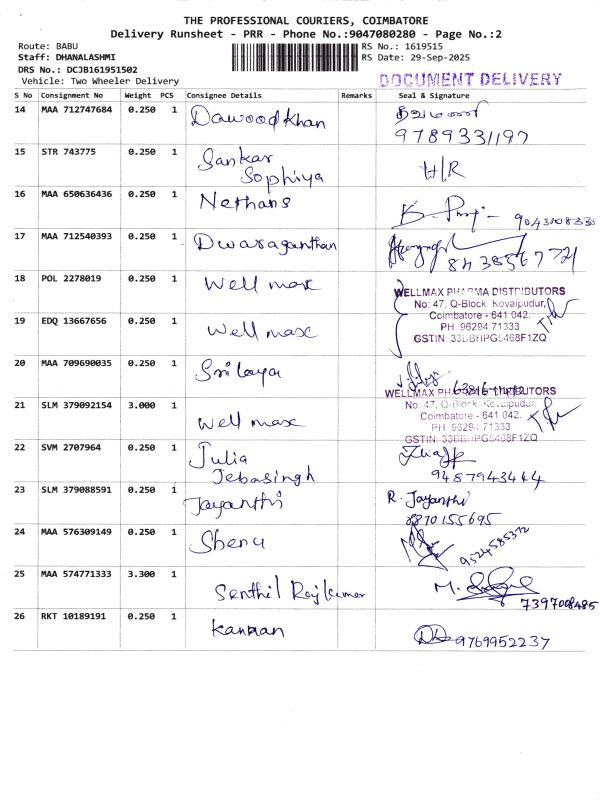 THE PROFESSIONAL COURIERS, COIMBATORE
Delivery Runsheet - PRR - Phone No.:9047080280 - Page No.:2
Route: BABU RS No.: 1619515
Staff: DHANALASHMI RS Date: 29-Sep-2025
DRS No.: DCJB161951502
Vehicle: Two Wheeler Delivery
DOCUMENT DELIVERY
S No Consignment No Weight PCS Consignee Details Remarks Seal & Signature
14 MAA 712747684 0.250 1 Dawood Khan
9789331197
15 STR 743775 0.250 1 Sankar H/R
Sophiya
16 MAA 650636436 0.250 1 Nethans
17 MAA 712540393 0.250 1 Dwaraganthan
8438567721
18 POL 2278019 0.250 1 Well max
WELLMAX PHARMA DISTRIBUTORS
No: 47, Q-Block, Kovaipudur,
Coimbatore - 641 042.
PH: 96294 71333
GSTIN: 33BBHPG5468F1ZQ
19 EDQ 13667656 0.250 1 Well max
20 MAA 709690035 0.250 1 Srilaya
21 SLM 379092154 3.000 1 Well max
WELLMAX PHARMA DISTRIBUTORS
No: 47, Q-Block, Kovaipudur,
Coimbatore - 641 042.
PH: 96294 71333
GSTIN: 33BBHPG5468F1ZQ
22 SVM 2707964 0.250 1 Julia
Jebasingh
9487943444
23 SLM 379088591 0.250 1 Jayanthi R. Jayanthi
8870155695
24 MAA 576309149 0.250 1 Shenu
9524585372
25 MAA 574771333 3.300 1 Senthil Rajkumar
7397008485
26 RKT 10189191 0.250 1 Kannan 9769952237